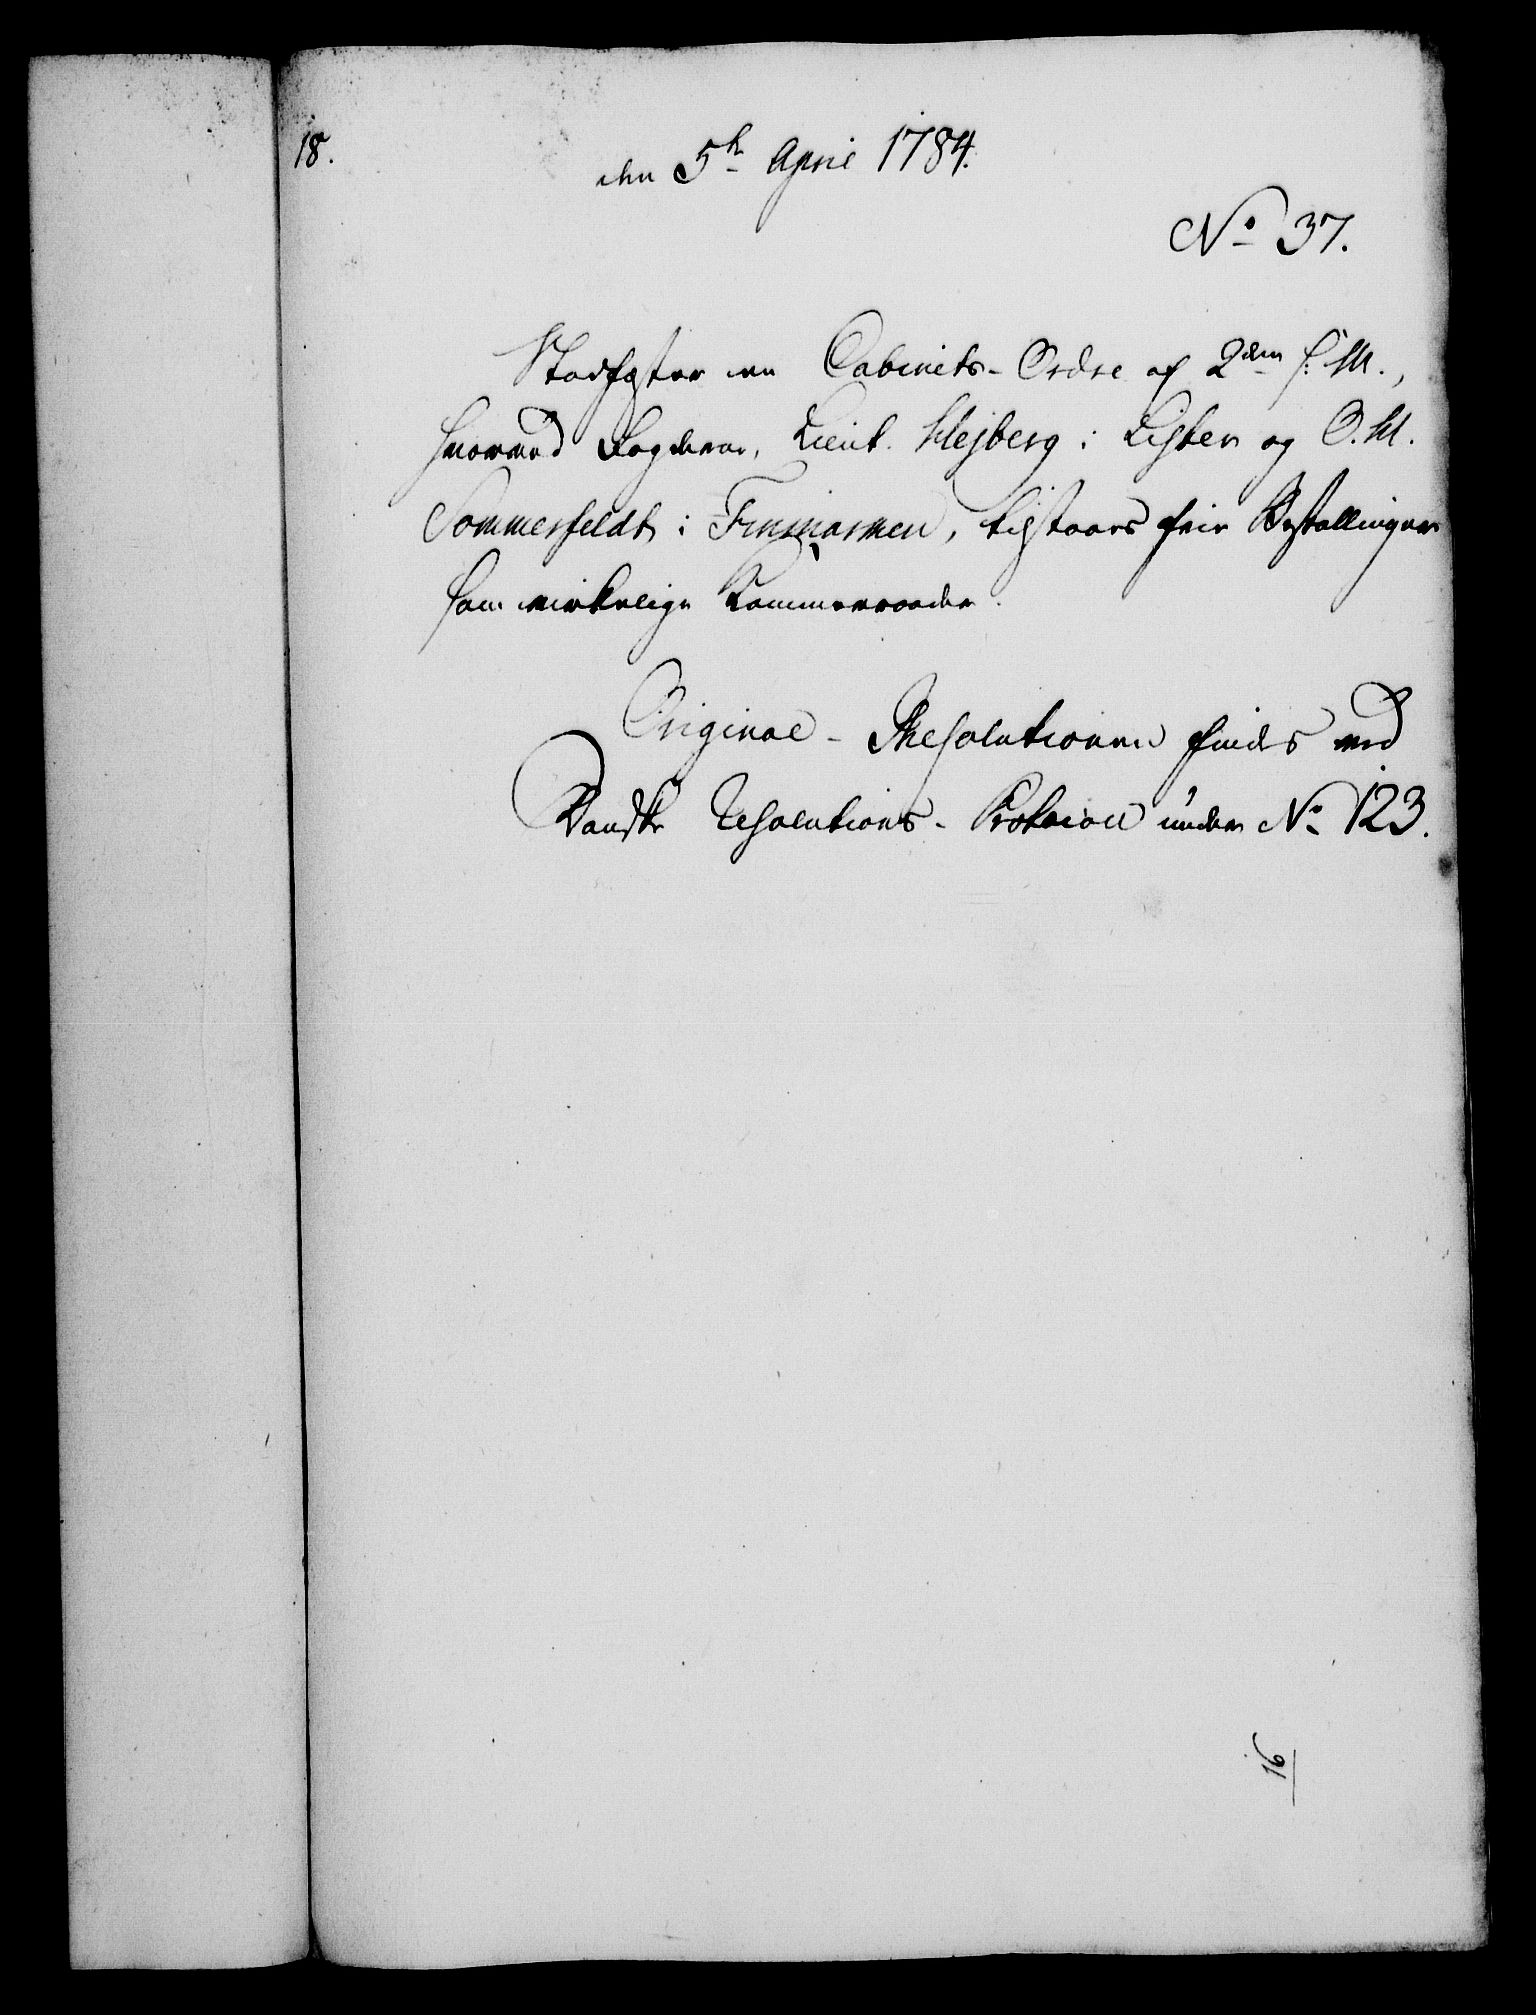 18.
den 5te April 1784.
No 37.
Stadfæster en Cabinets-Ordre af 2den s: M.,
hvorved Fogderne, Lieut. Flejberg i Lister og O. M.
Sommerfeldt i Finmarken, tilstaaes frie Bestallinger
som virkelige Kammerraader.
Original-Resolutionen findes ved
Danske Resolutions-Protocoll under No 123.
16